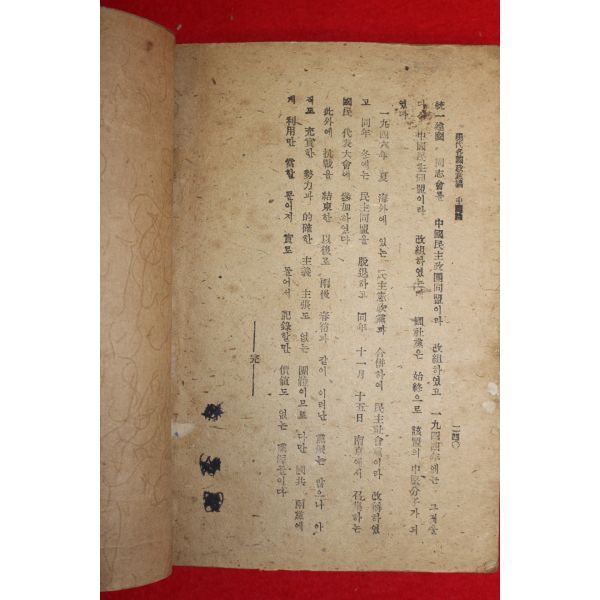 現代各國政黨論 中國篇
二四〇
統一建國 同志會를 中國民主政團同盟이라 改組하였고 一九四四年에는 그것을
다시 中國民主同盟이라 改組하였는데 國社黨은 始終으로 該盟의 中堅分子가 되
였다
一九四六年 夏 海外에 있는 民主憲政黨과 合併하여 民主社會黨이라 改稱하였
고 同年 冬에는 民主同盟을 脫退하고 同年 十一月 十五日 南京에서 召集하는
國民 代表大會에 參加하였다
此外에 抗戰을 結束한 以後로 雨後 春筍과 같이 이러난 黨派는 많으나 아
직도 充實한 勢力과 的確한 主義 主張도 없는 團體이므로 다만 國共 兩黨에
게 利用만 當할 뿐이지 實로 들어서 記錄할만 價値도 없는 黨派들이다
——完——